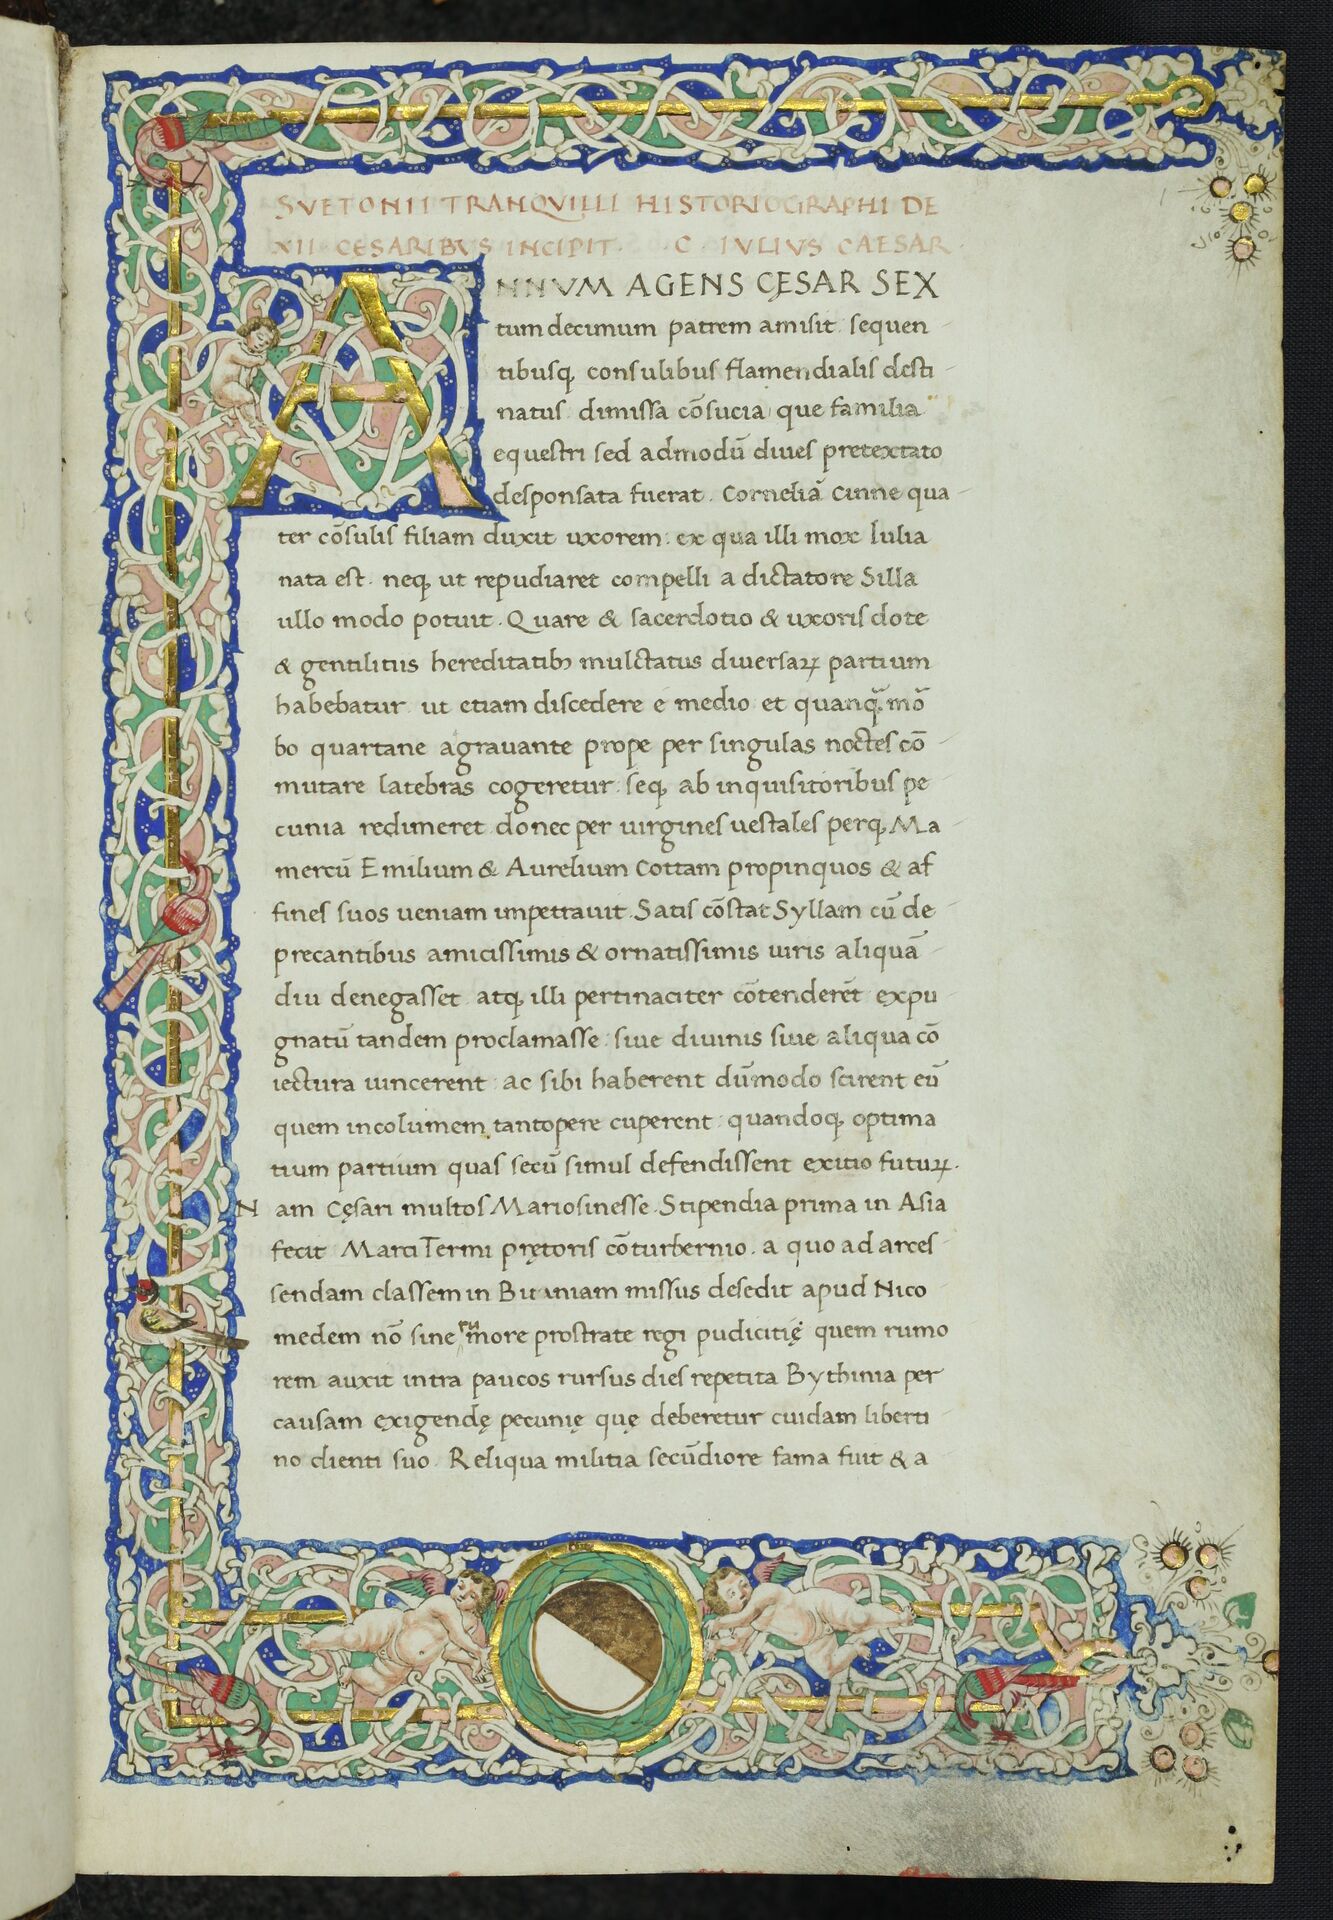 SVETONII TRANQVILLI HISTORIOGRAPHI DE
XII CESARIBVS INCIPIT · C · IVLIVS CAESAR ·
ANNVM AGENS CĘSAR SEX
tum decimum patrem amisit sequen
tibusq; consulibus flamendialis desti
natus dimissa cōsucia que familia
equestri sed admodū diues pretextato
desponsata fuerat. Corneliā Cinne qua
ter cōsulis filiam duxit uxorem. ex qua illi mox Iulia
nata est. neq; ut repudiaret compelli a dictatore Silla
ullo modo potuit. Quare & sacerdotio & uxoris dote
& gentilitiis hereditatibꝫ mulctatus diuersaꝝ partium
habebatur ut etiam discedere e medio et quanq̄ mō
bo quartane agrauante prope per singulas noctes cō
mutare latebras cogeretur. seq; ab inquisitoribus pe
cunia redimeret donec per uirgines uestales perq; Ma
mercū Emilium & Aurelium Cottam propinquos & af
fines suos ueniam impetrauit. Satis cōstat Syllam cū de
precantibus amicissimis & ornatissimis uiris aliquā
diu denegasset atq; illi pertinaciter cōtenderēt expu
gnatū tandem proclamasse siue diuinis siue aliqua cō
iectura uincerent ac sibi haberent dūmodo scirent eū
quem incolumem tantopere cuperent quandoq; optima
tium partium quas secū simul defendissent exitio futuꝝ.
Nam Cęsari multos Mariosinesse. Stipendia prima in Asia
fecit Marci Termi prętoris cōturbernio. a quo ad arces
sendam classem in Bitiniam missus desedit apud Nico
medem nō sine rumore prostrate regi pudicitię quem rumo
rem auxit intra paucos rursus dies repetita Bythinia per
causam exigendę pecunię quę deberetur cuidam liberti
no clienti suo. Reliqua militia secūdiore fama fuit & a